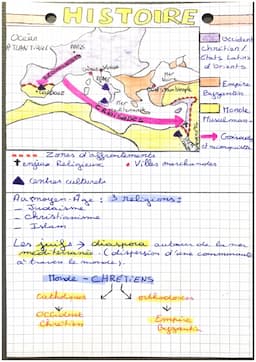 HISTOIRE
Océan
ATLANTIQUE
PARIS
ROME
CROISADES
Mer
Mer
Occident
chrétien /
états Latins
d'Orients
Empire
Byzantin
Monde
Musulman
Zones d'affrontements
enjeu Religieux
Villes marchandes
Centres culturels
Au moyen-Âge : 3 religions :
- Judaïsme
- Christianisme
- Islam
Les juifs → diaspora autour de la mer
méditerranée : (dispersion d'une communauté
à travers le monde).
Monde - CHRÉTIENS
Catholiques orthodoxes
Occident Empire
Chrétien Byzantin